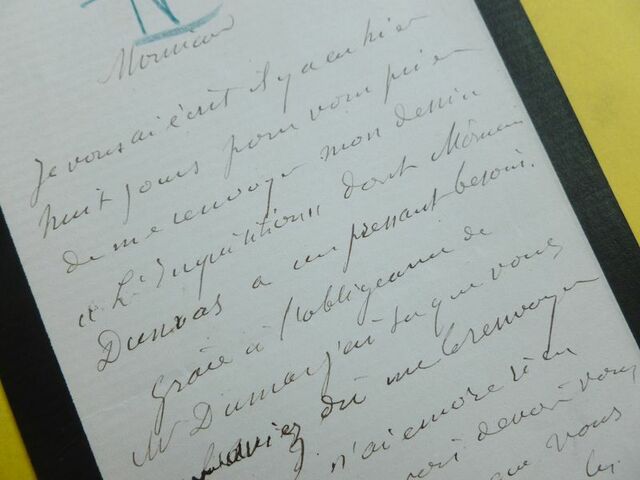 Monsieur
Je vous ai écrit il y a eu hier
huit jours pour vous prier
de me renvoyer mon dessin
"L'Inquisition" dont Monsieur
Dumas a un pressant besoin.
Grâce à l'obligeance de
Mr Dumas j'ai su que vous
aviez dû me le renvoyer
n'ai encore rien
devoir vous
que vous